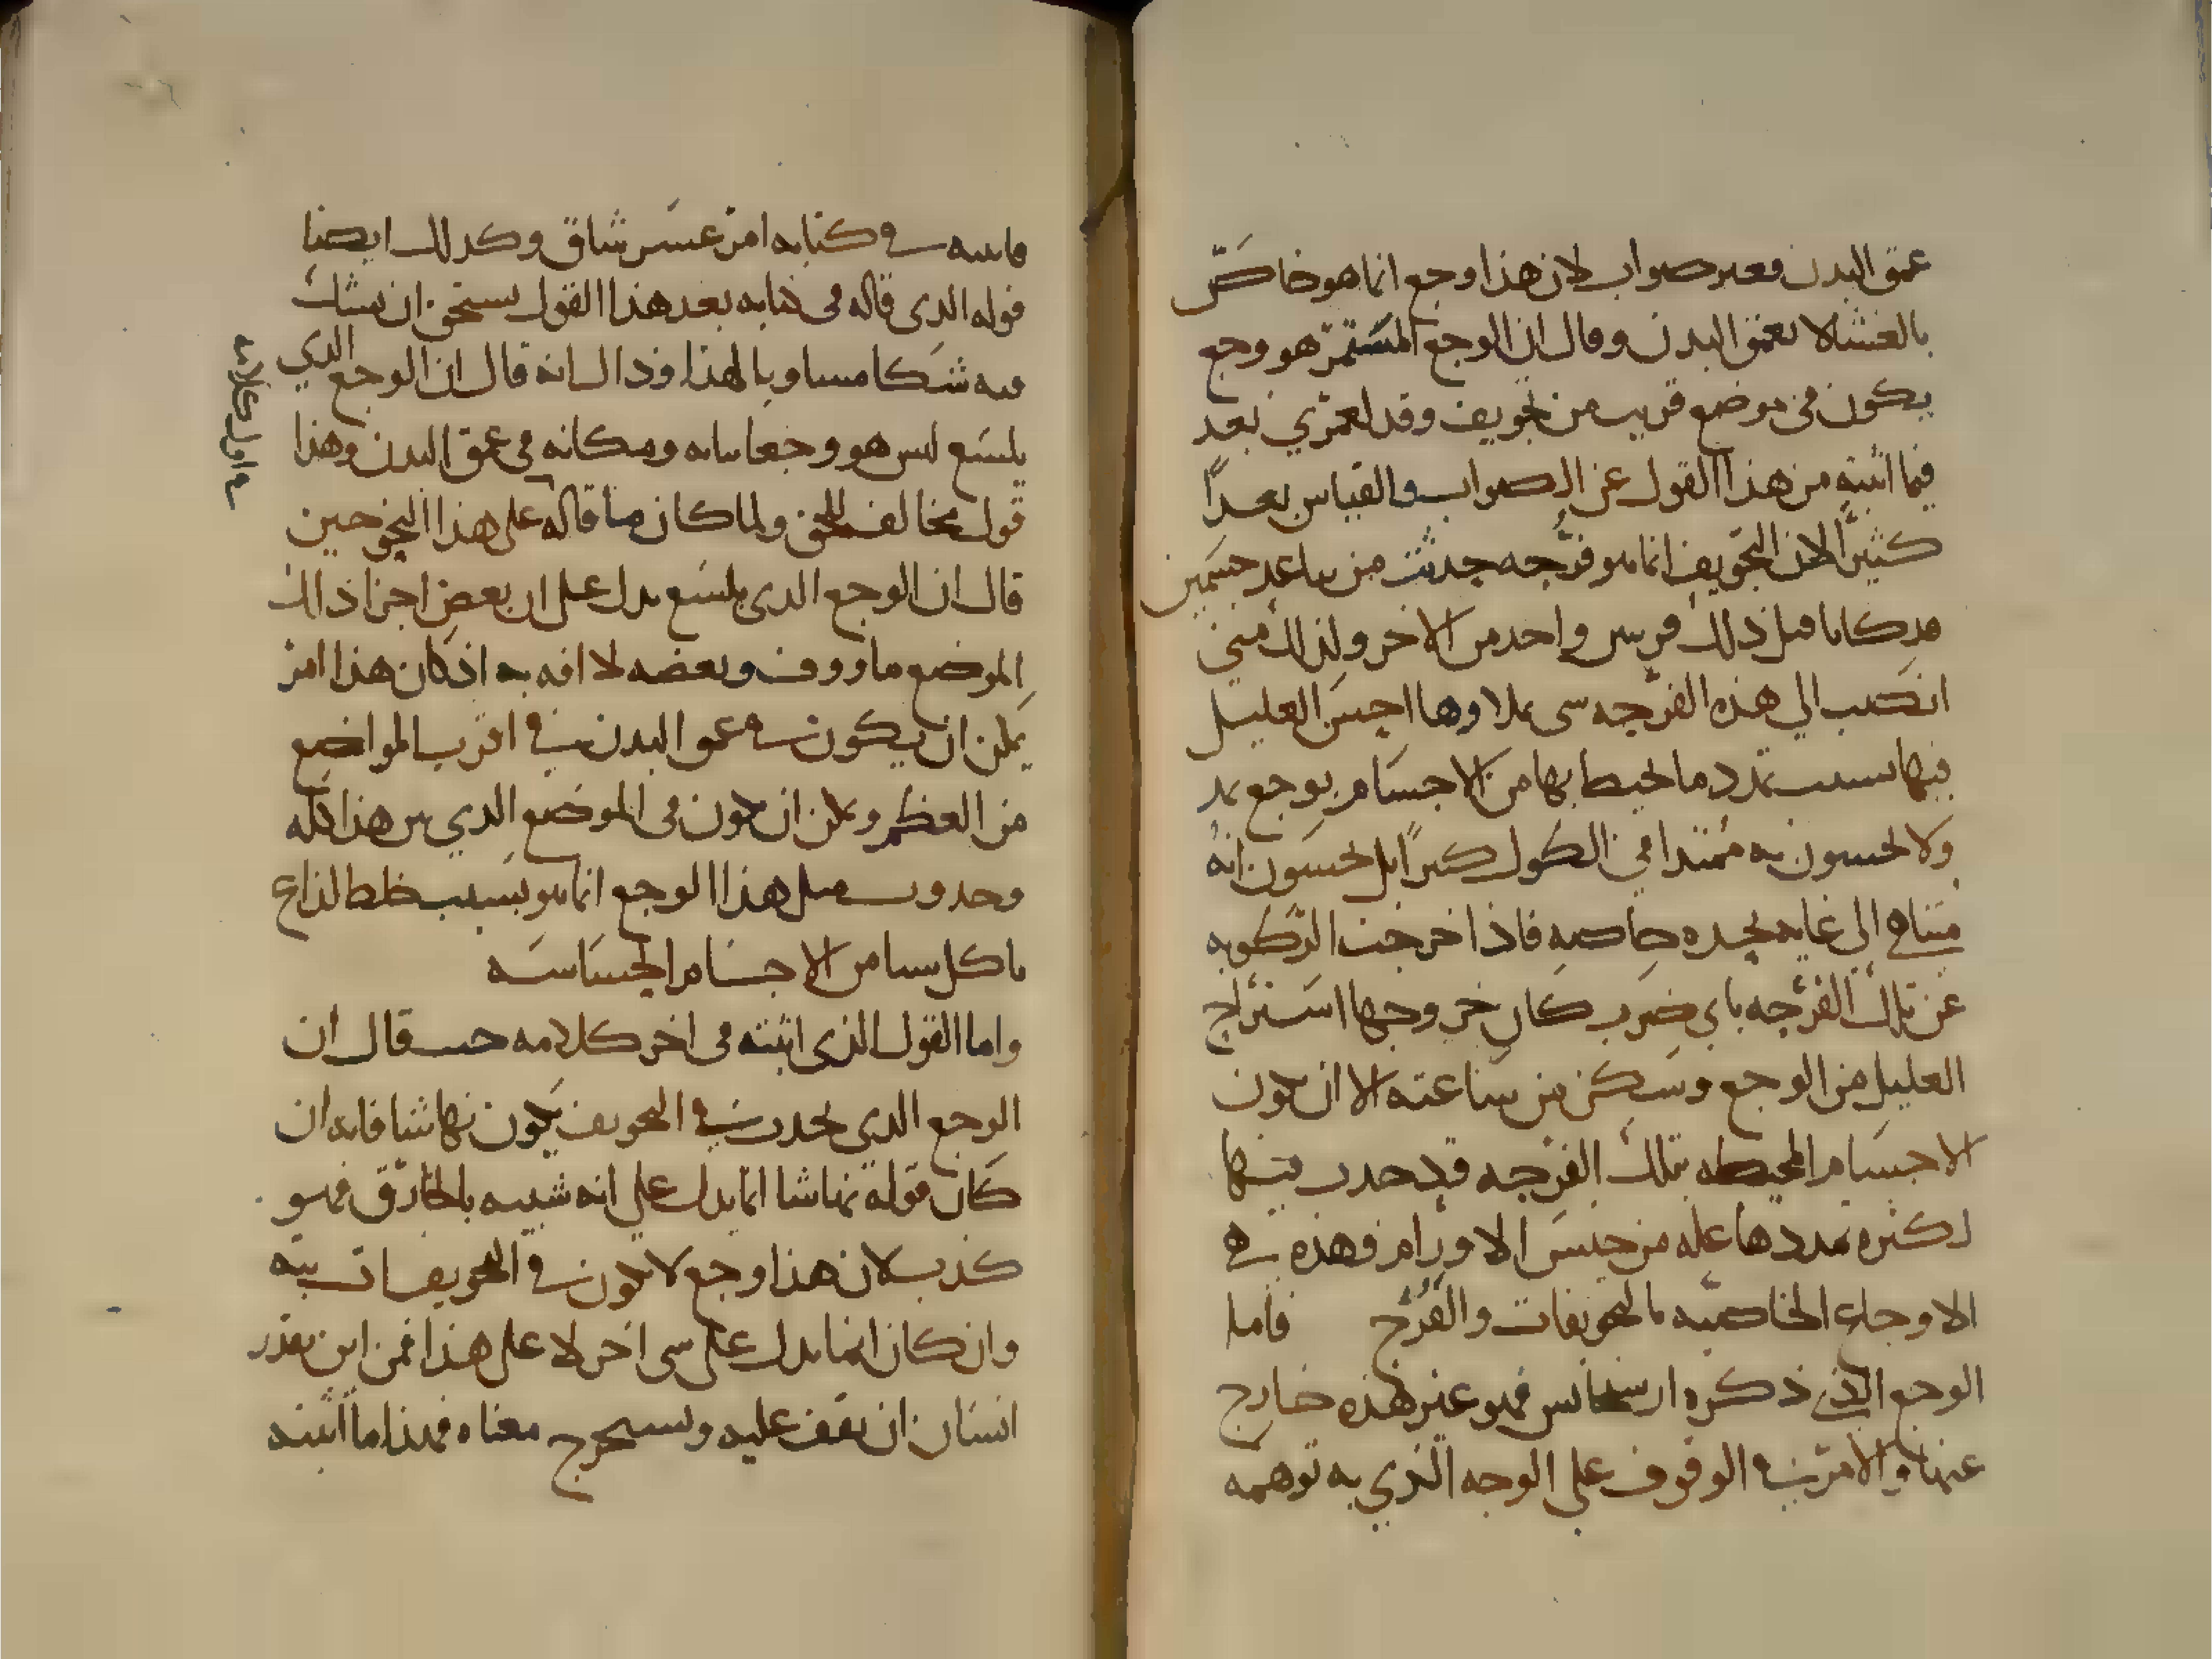 عمق البدن فغير صواب لان هذا وجع انما هو خاص
بالغشا لا بعمق البدن وقال ان الوجع المستمر هو وجع
يكون في موضع قريب من تجويف وقد لعمري بعد
فيما اثبته من هذا القول عن الصواب والقياس بعدًا
كثيرًا لان التجويف انما هو فرجه حدثت من تباعد جسمين
قد كانا قبل ذلك قريبين واحد من الاخر ولذلك متى
انصب الي هذه الفرجه شي يملاوها احس العليل
فيها بسبب تمدد ما يحيط بها من الاجسام بوجع
ولا يحسون به ممتدا في الطول كثيرًا بل يحسون انه
متناه الى غايه خاصيه فاذا خرجت الرطوبه
عن تلك الفرجه باي ضرب كان خروجها استراح
العليل من الوجع وسكن من ساعته الا ان تكون
الاجسام المحيطه بتلك الفرجه قد حدث فيها
لكثره تمددها عله من جنس الاورام فهذه هي
الاوجاع الخاصيه بالتجويفات والفرج فاما
الوجع الذي ذكره ارشيجانس فهو غير هذه خارج
عنها والامر في الوقوف على الوجه الذي به توهمه
في كتابه امر عسر شاق وكذلك ايضا
قوله الذي قاله في كتابه بعد هذا القول يستحق ان نشك
فيه شكا مساويا لهذا وذاك انه قال ان الوجع الذي
يلسع ليس هو وجعا ومكانه في عمق البدن وهذا
قول مخالف للحق ولما كان ما قاله على هذا النحو حين
قال ان الوجع الذي يلسع يدل على ان بعض اجزا ذلك
الموضع ماووف وبعضه لا افه به اذ كان هذا امر
يمكن ان يكون في عمق البدن في اقرب المواضع
من العظم ويمكن ان يكون في الموضع الذي بين هذا كله
وحدوث مثل هذا الوجع انما هو بسبب خلط لذاع
ياكل شيا من الاجسام الحساسه
واما القول الذي اثبته في اخر كلامه حيث قال ان
الوجع الذي يحدث في التجويف يكون نهاشا فانه ان
كان قوله نهاشا انما يدل علي انه شبيه بالخارق فهو
كذب لان هذا وجع لا يكون في التجويفات بته
وان كان انما يدل على شي اخر لا على هذا فمن اين يقدر
انسان ان يقف عليه ويستخرج معناه فهذا ما اثبته
في اول كلامه